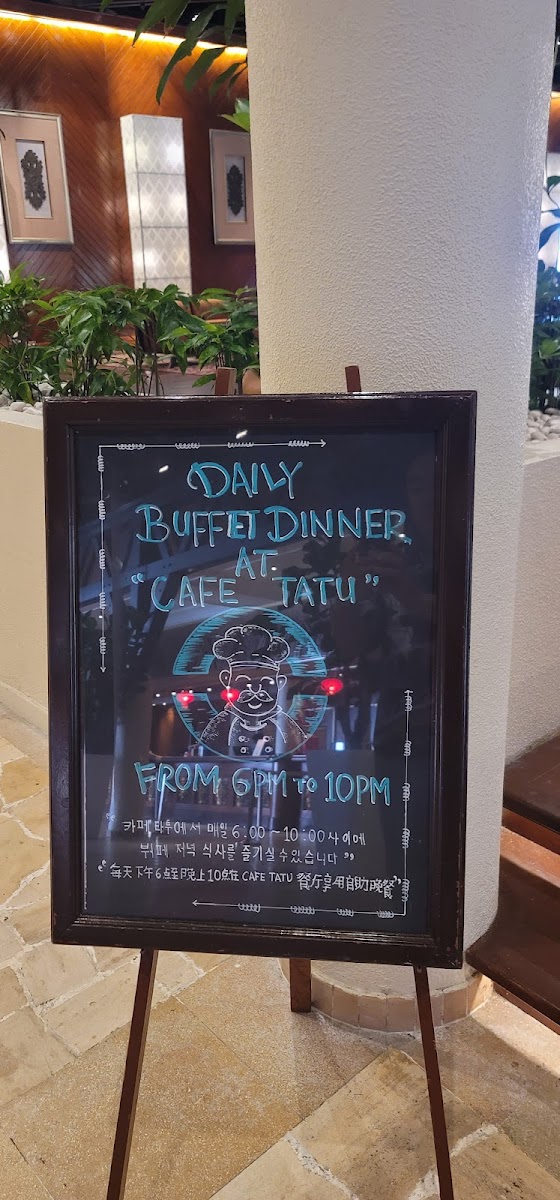 DAILY
BUFFET DINNER
AT
"CAFE TATU"
FROM 6PM TO 10PM
"카페 타투에서 매일 6:00~10:00 사이에
뷔페 저녁 식사를 즐기실 수 있습니다"
"每天下午6点至晚上10点在 CAFE TATU 餐厅享用自助晚餐"